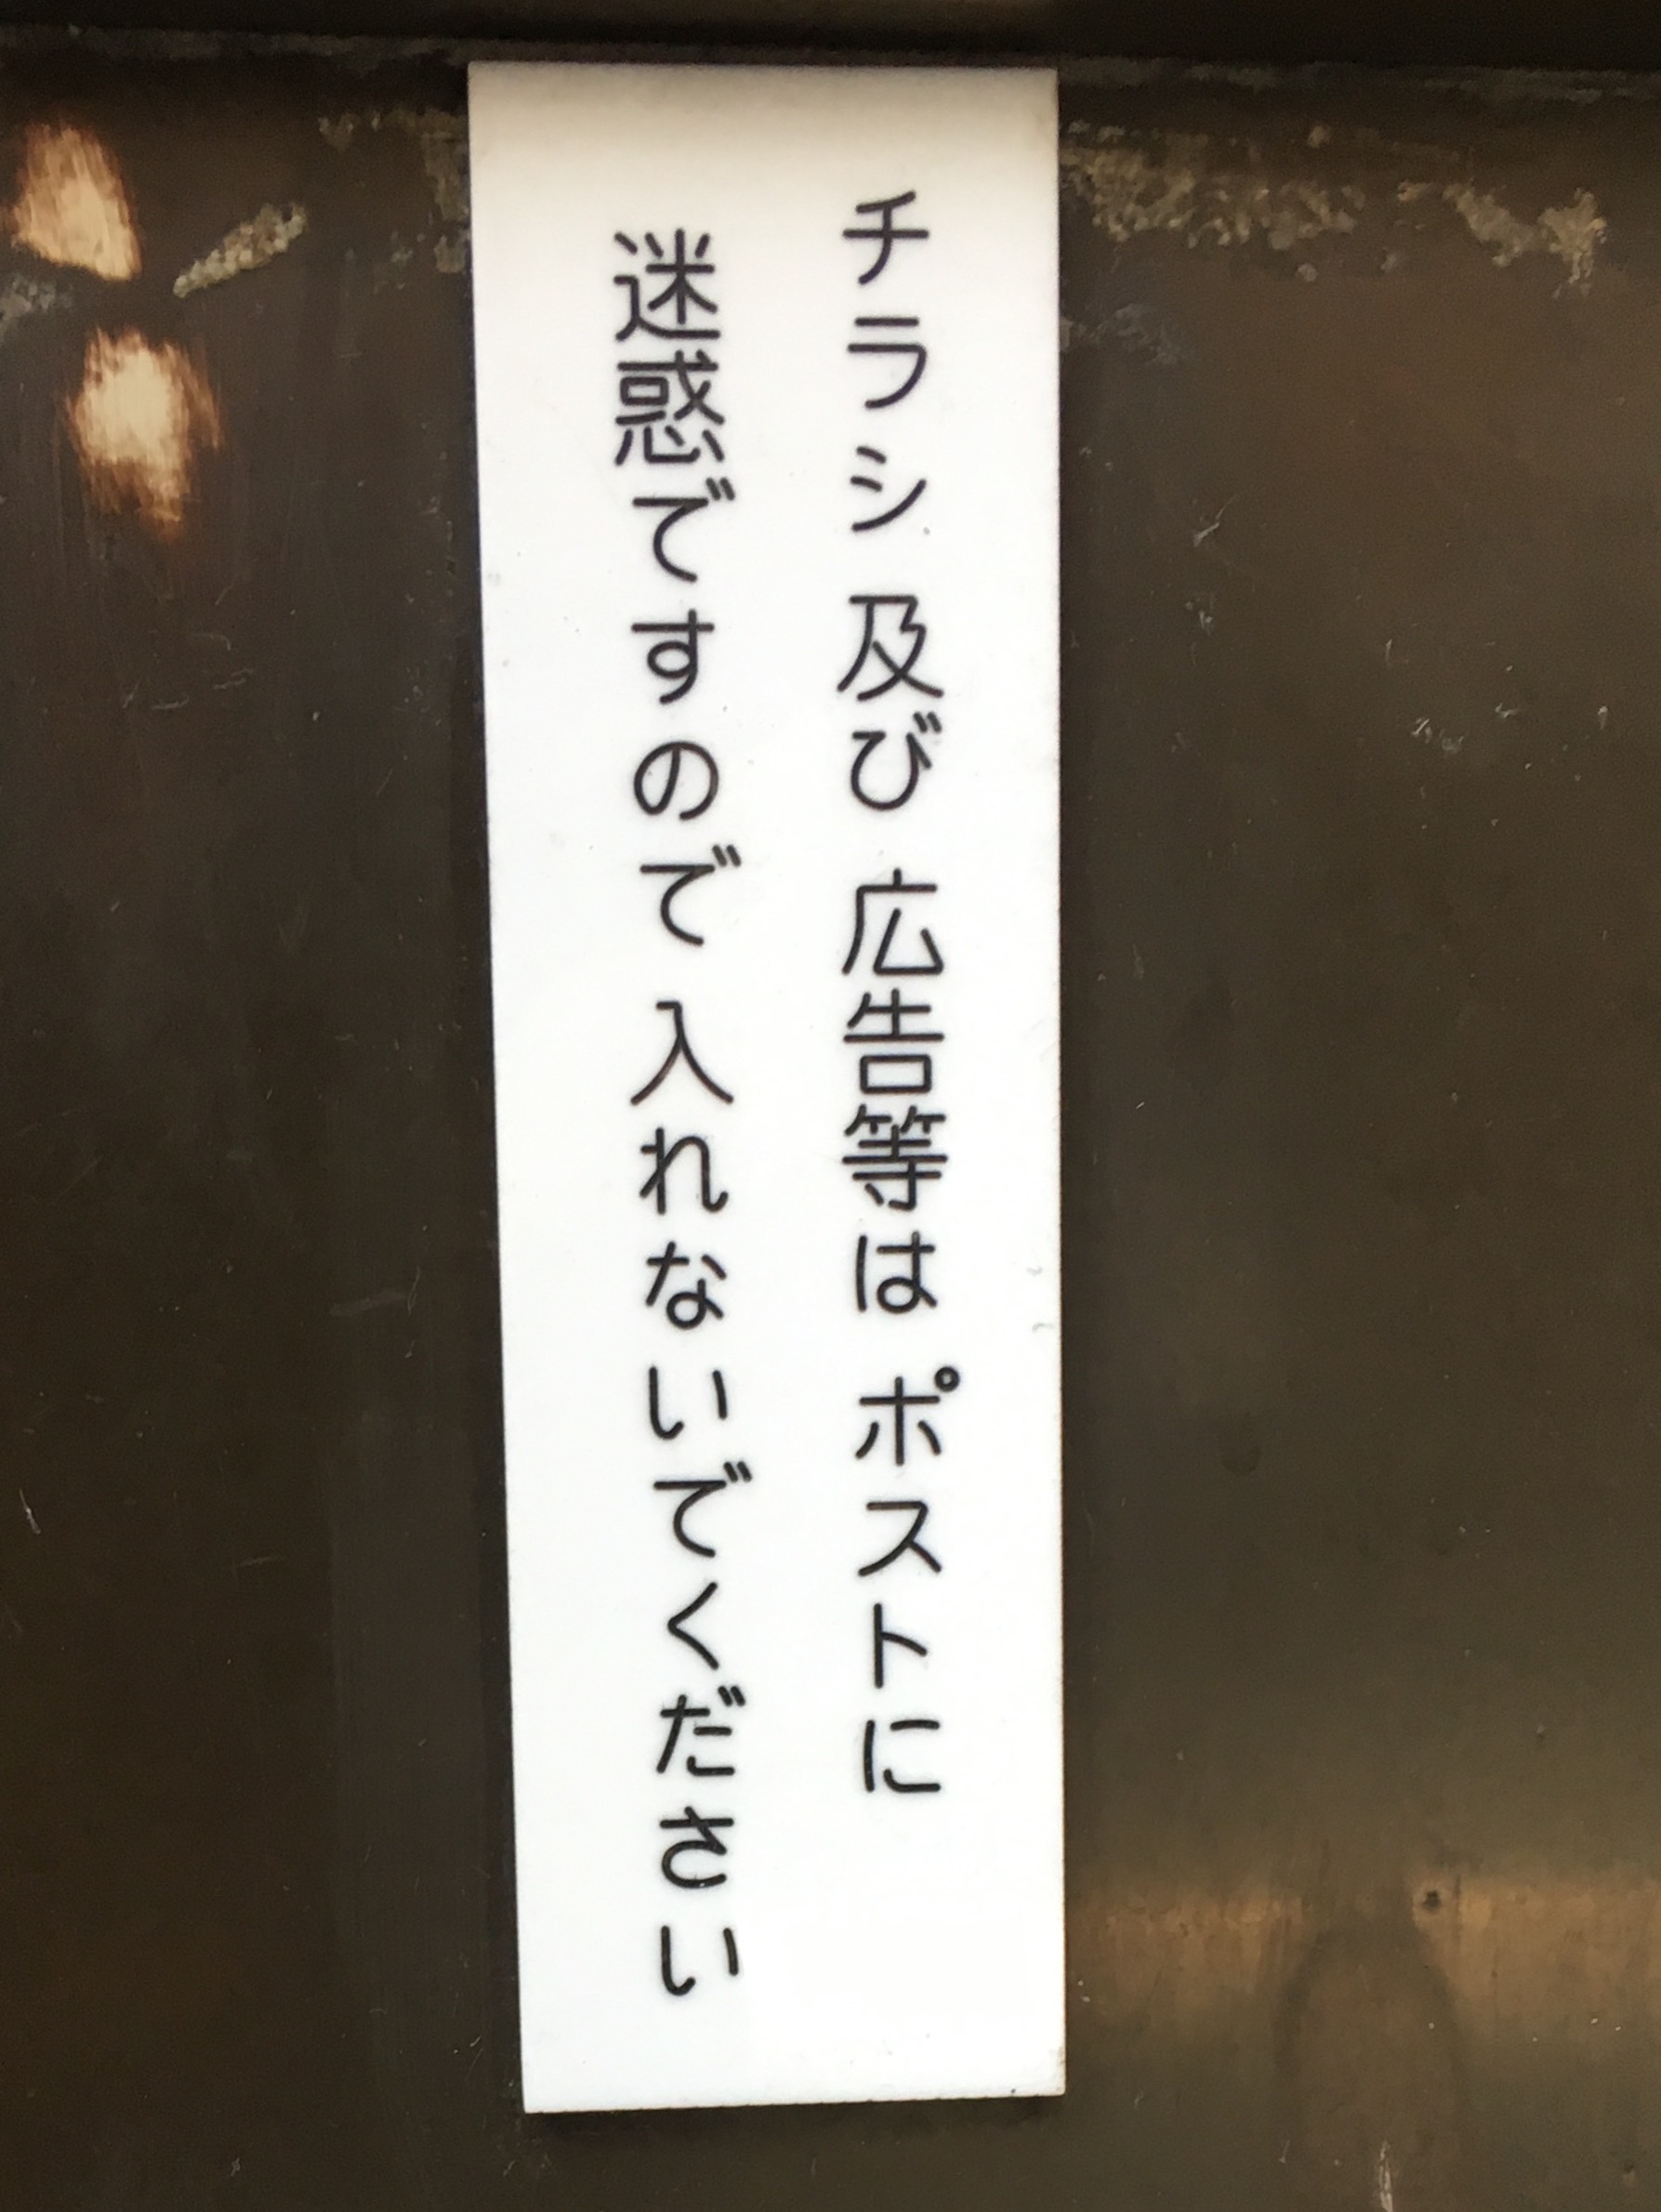 チラシ 及び 広告等は ポストに
迷惑ですので 入れないでください